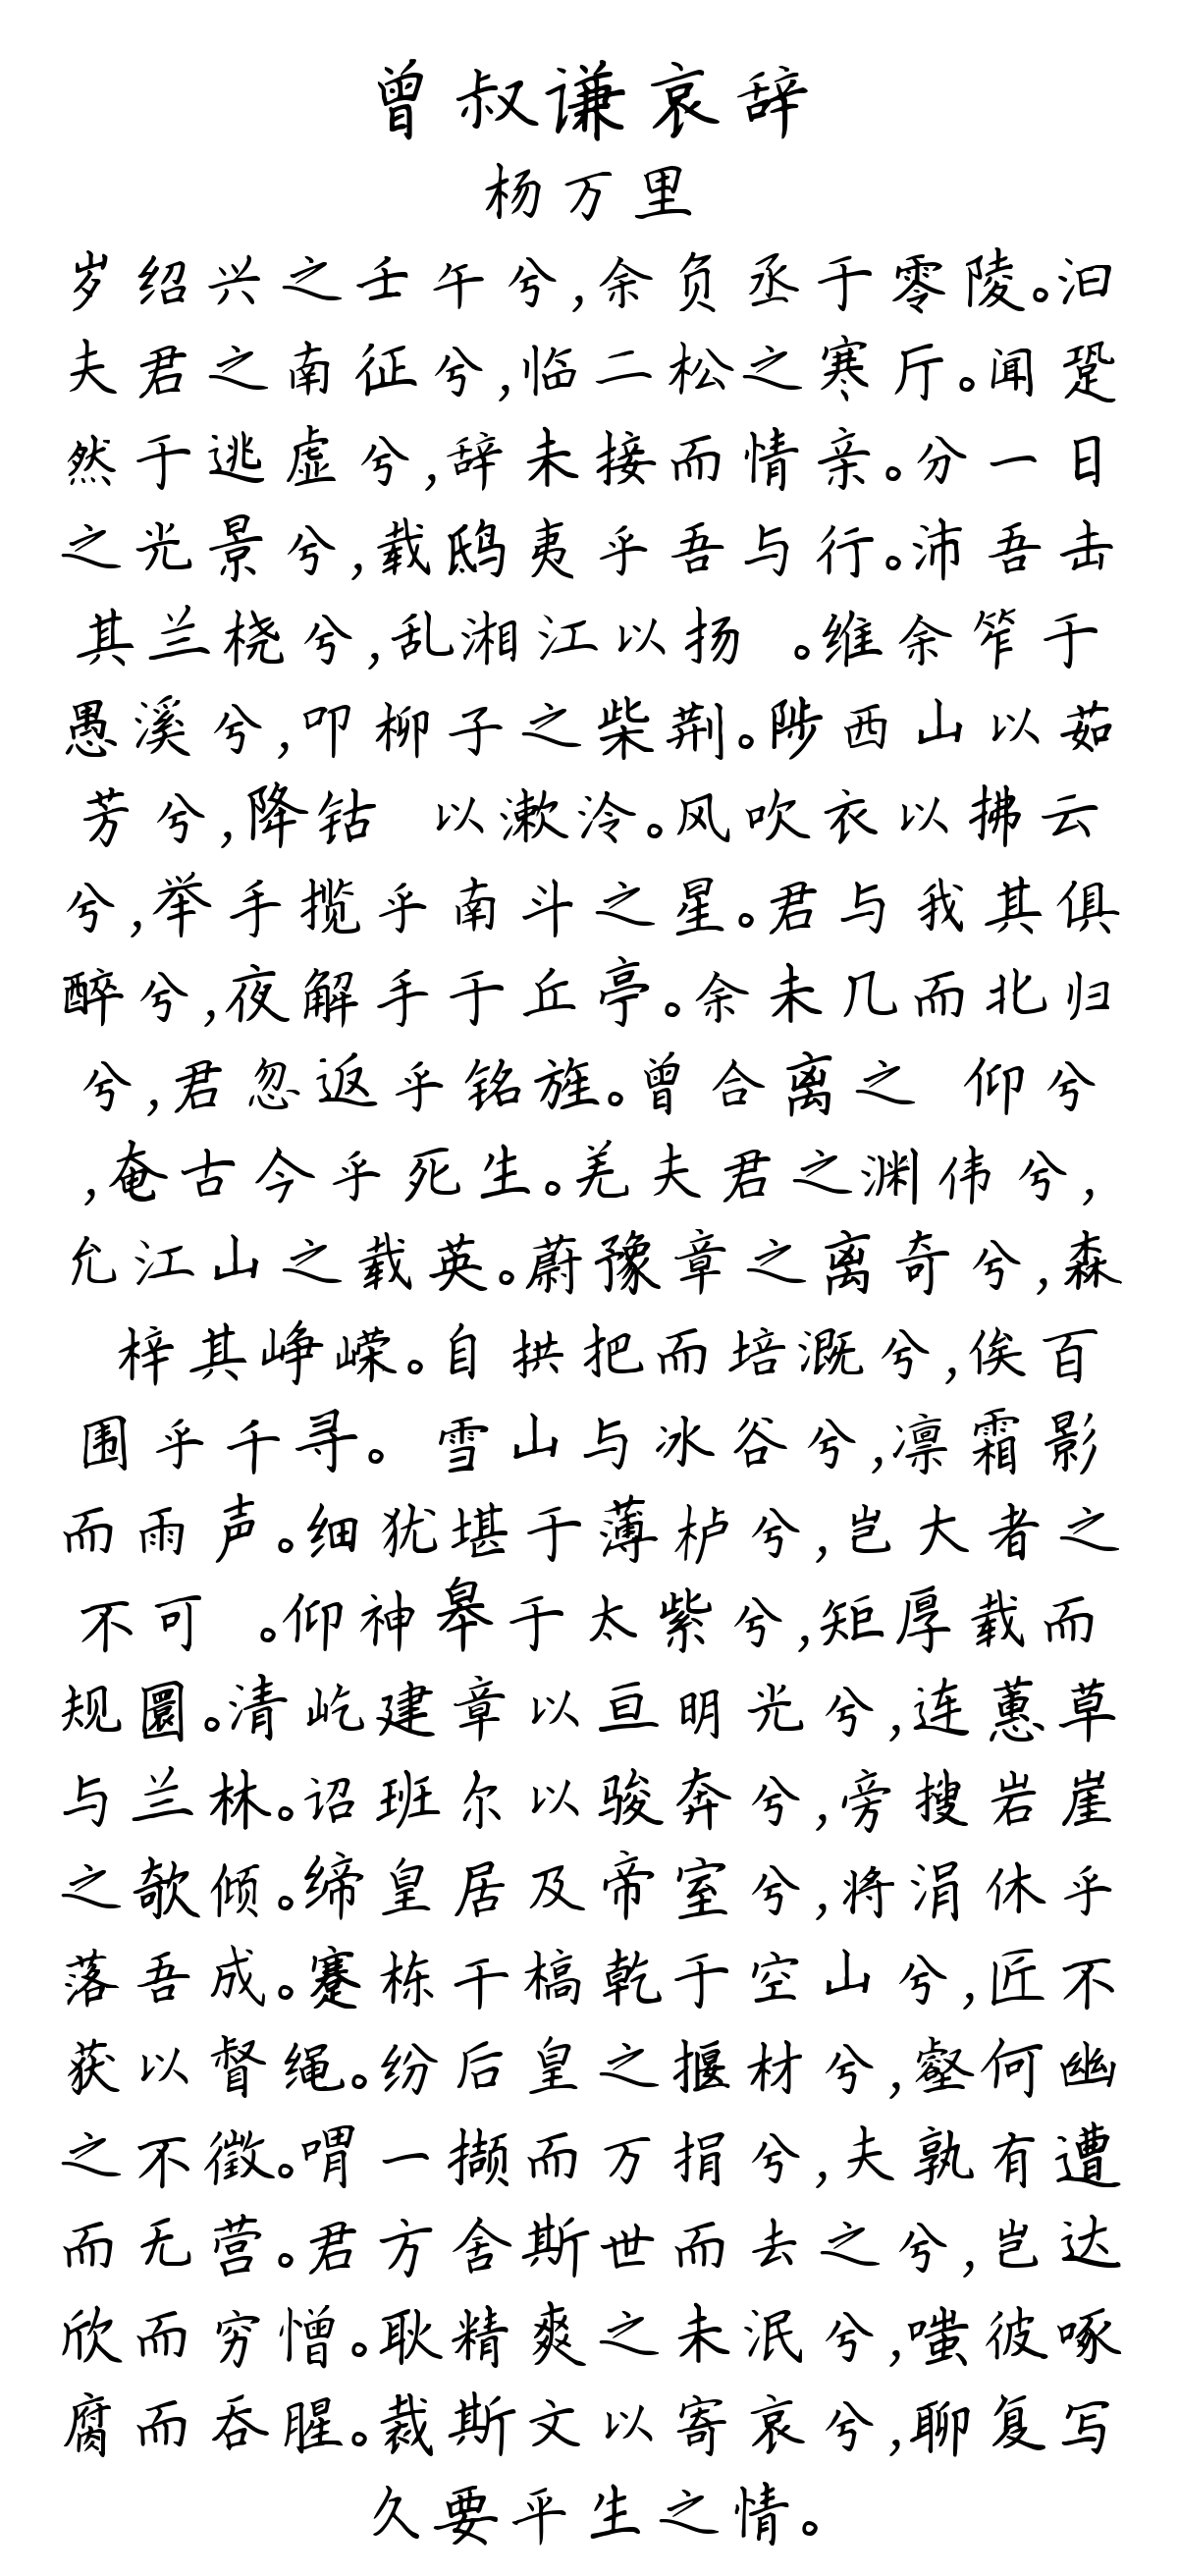 曾叔谦哀辞
杨万里
岁绍兴之壬午兮,余负丞于零陵。汩
夫君之南征兮,临二松之寒厅。闻跫
然于逃虚兮,辞未接而情亲。分一日
之光景兮,载鸱夷乎吾与行。沛吾击
其兰桡兮,乱湘江以扬 。维余笮于
愚溪兮,叩柳子之柴荆。陟西山以茹
芳兮,降钴 以漱泠。风吹衣以拂云
兮,举手揽乎南斗之星。君与我其俱
醉兮,夜解手于丘亭。余未几而北归
兮,君忽返乎铭旌。曾合离之 仰兮
,奄古今乎死生。羌夫君之渊伟兮,
允江山之载英。蔚豫章之离奇兮,森
梓其峥嵘。自拱把而培溉兮,俟百
围乎千寻。 雪山与冰谷兮,凛霜影
而雨声。细犹堪于薄栌兮,岂大者之
不可 。仰神皋于太紫兮,矩厚载而
规圜。清屹建章以亘明光兮,连蕙草
与兰林。诏班尔以骏奔兮,旁搜岩崖
之欹倾。缔皇居及帝室兮,将涓休乎
落吾成。蹇栋干槁乾于空山兮,匠不
获以督绳。纷后皇之揠材兮,壑何幽
之不徵。喟一撷而万捐兮,夫孰有遭
而无营。君方舍斯世而去之兮,岂达
欣而穷憎。耿精爽之未泯兮,嗤彼啄
腐而吞腥。裁斯文以寄哀兮,聊复写
久要平生之情。